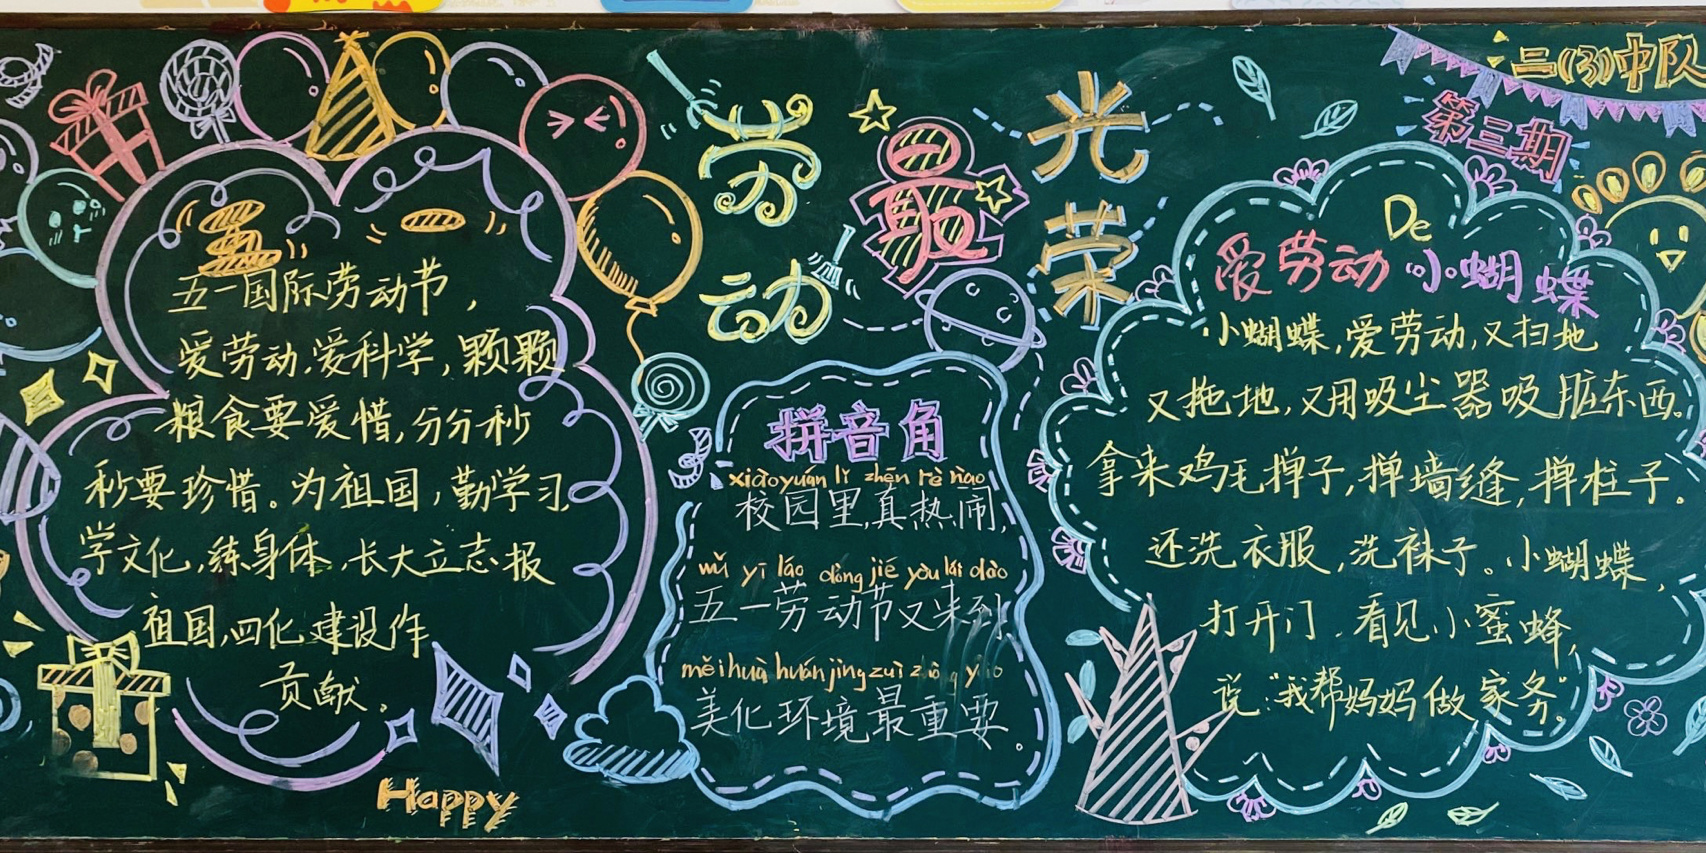 二(3)中队
第三期
劳动最光荣
五一国际劳动节，
爱劳动，爱科学，颗颗
粮食要爱惜，分分秒
秒要珍惜。为祖国，勤学习，
学文化，练身体，长大立志报
祖国，四化建设作
贡献。
Happy
拼音角
xiào yuán lǐ zhēn rè nào
校园里，真热闹，
wǔ yī láo dòng jié yòu lái dào
五一劳动节又来到
měi huà huán jìng zuì zhòng yào
美化环境最重要。
De
爱劳动小蝴蝶
小蝴蝶，爱劳动，又扫地
又拖地，又用吸尘器吸脏东西。
拿来鸡毛掸子，掸墙缝，掸柱子。
还洗衣服，洗袜子。小蝴蝶，
打开门，看见小蜜蜂，
说：“我帮妈妈做家务”。